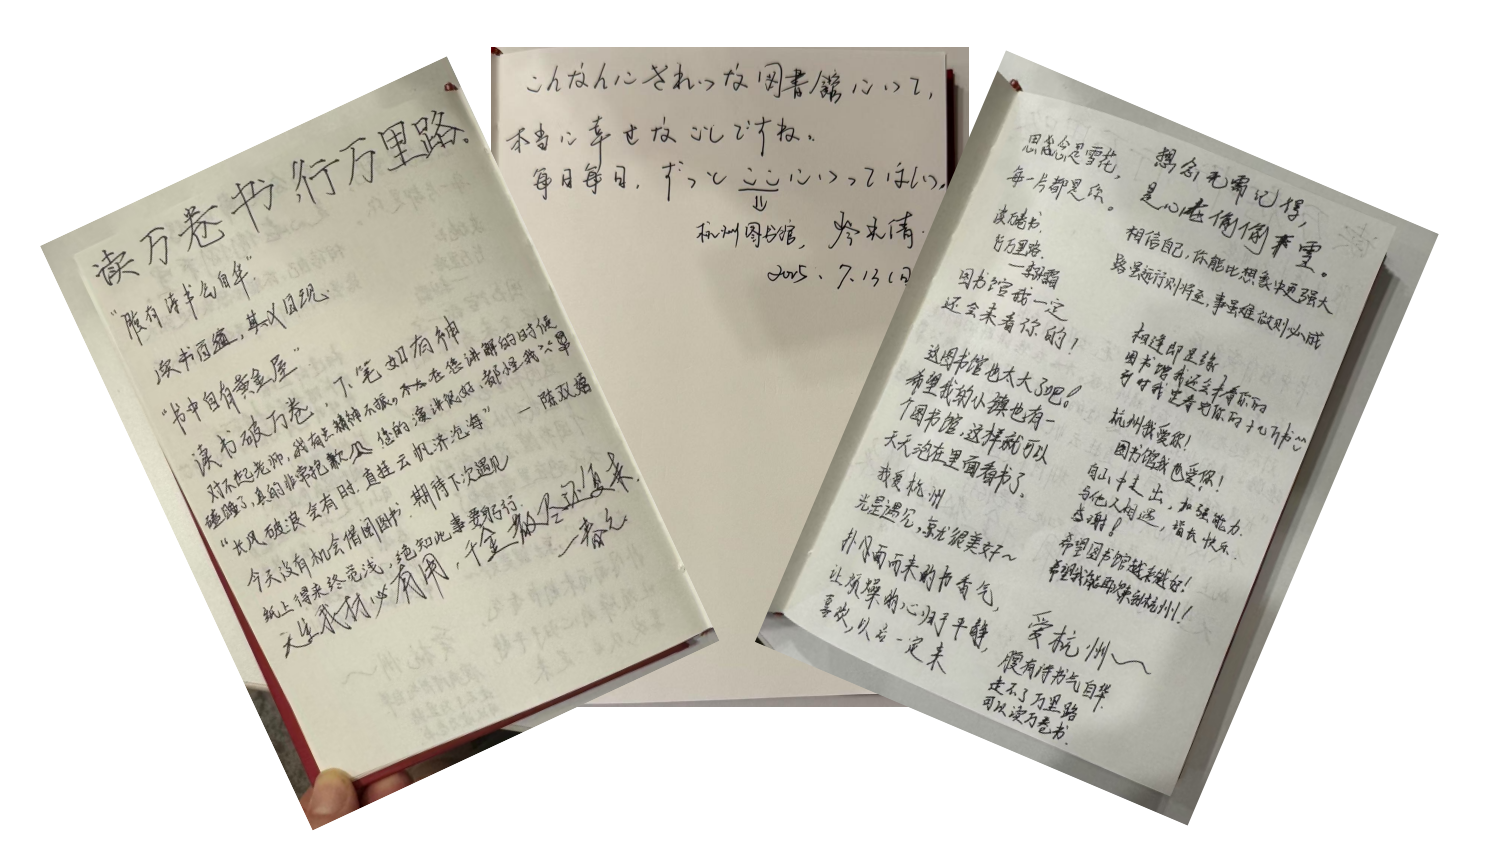 读万卷书,行万里路。
"腹有诗书气自华"
读书百遍,其义自现.
"书中自有黄金屋"
读书破万卷,下笔如有神
对不起老师,我有点精神不振。不太在您讲解的时候
瞌睡了,真的非常抱歉 您的演讲很好,都怪我
"长风破浪会有时,直挂云帆济沧海" — 陈双嬉
今天没有机会借阅图书.期待下次遇见
纸上得来终觉浅,绝知此事要躬行.
天生我材必有用,千金散尽还复来.
こんなんにきれいな図書館にいて,
本当に幸せなことですね。
毎日毎日,ずっとここにいってほしい.
⇓
杭州图书馆,
2025.7.13日
思念是雪花,
每一片都是你。
想念无需记得,
是心在偷偷下雪。
读万卷书.
行万里路.
图书馆我一定
还会来看你的!
相信自己,你能比想象中更强大
路虽远行则将至,事虽难做则必成
这图书馆也太大了吧!
希望我的小镇也有一
个图书馆,这样就可以
天天泡在里面看书了。
我爱杭州
光是遇见,就尤很美好~
扑面而来的书香气,
让烦燥的心归于平静,
喜欢,以后一定来
相逢即是缘
图书馆我还会来看你的
到时我定看完你的千万书
杭州我爱你!
图书馆我也爱你!
自山中走出,加强能力.
与他人相遇,增长快乐.
感谢!
希望图书馆越来越好!
希望我能回来到杭州!
爱杭州~
腹有诗书气自华.
走不了万里路
可以读万卷书.